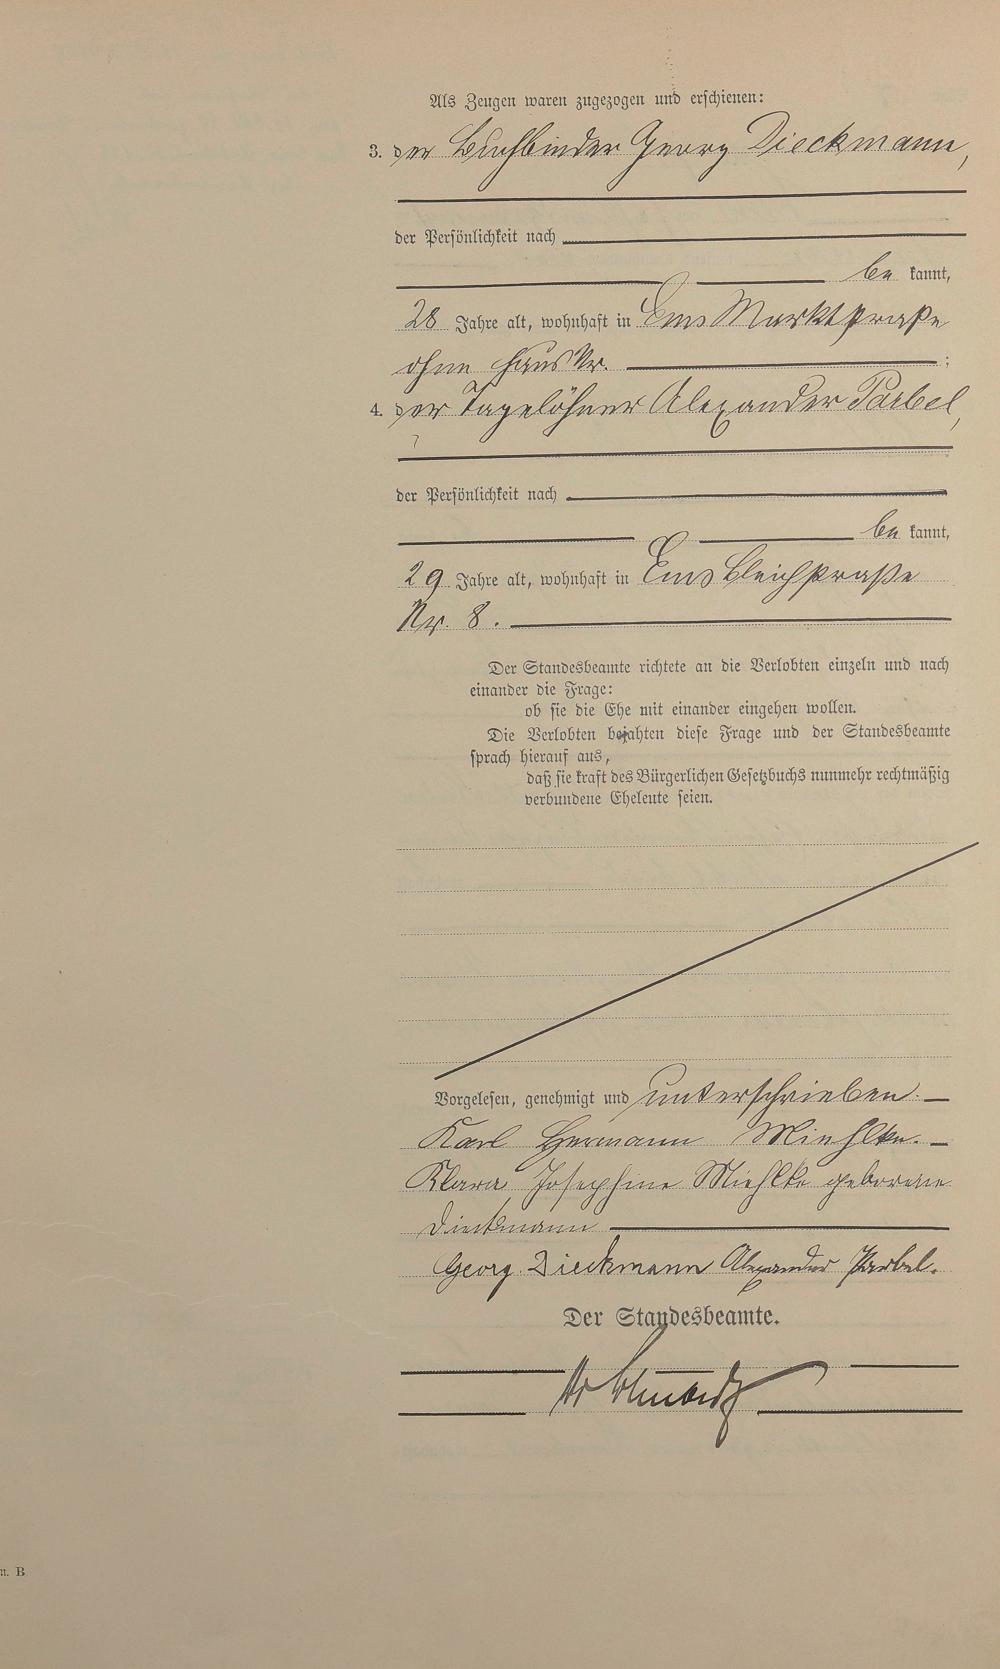 Als Zeugen waren zugezogen und erschienen:
3. der Buchbinder Georg Dieckmann,
der Persönlichkeit nach
be kannt,
28 Jahre alt, wohnhaft in Ems Marktstraße
ohne Haus Nr. ;
4. der Tagelöhner Alexander Parbel,
der Persönlichkeit nach
be kannt,
29 Jahre alt, wohnhaft in Ems Bleichstraße
Nr. 8.
Der Standesbeamte richtete an die Verlobten einzeln und nach
einander die Frage:
ob sie die Ehe mit einander eingehen wollen.
Die Verlobten bejahten diese Frage und der Standesbeamte
sprach hierauf aus,
daß sie kraft des Bürgerlichen Gesetzbuchs nunmehr rechtmäßig
verbundene Eheleute seien.
Vorgelesen, genehmigt und unterschrieben.
Karl Hermann Miehlke.
Klara Josephine Miehlke geborene
Dieckmann
Georg Dieckmann Alexander Parbel.
Der Standesbeamte.
B